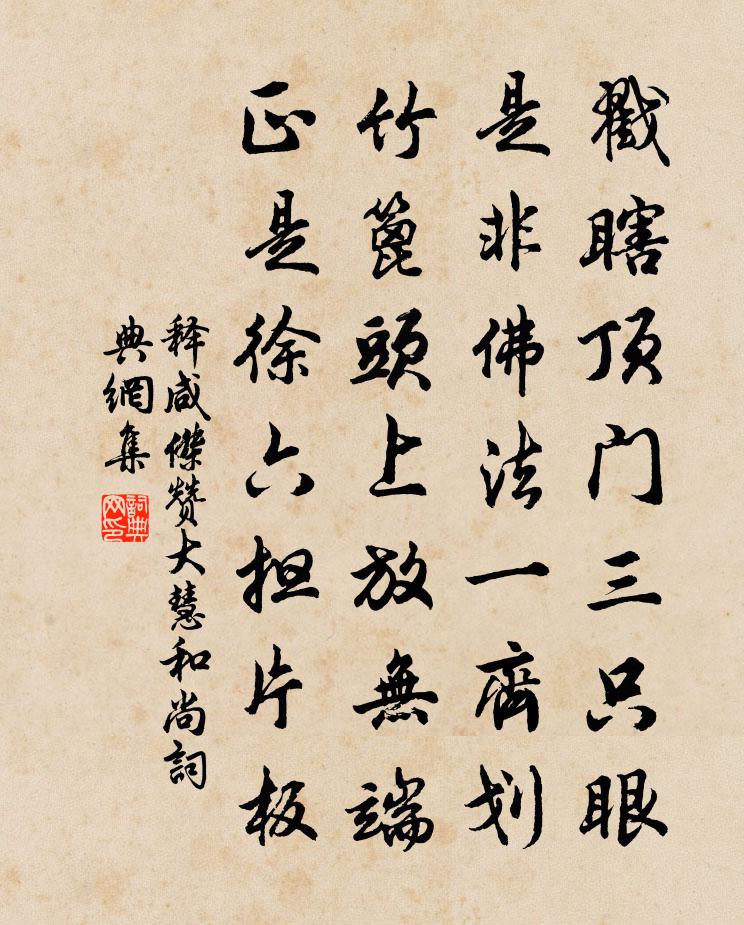 戳瞎顶门三只眼
是非佛法一齊划
竹篦頭上放無端
正是徐六担片板
释咸傑赞大慧和尚詞
典網集
詞典
网印